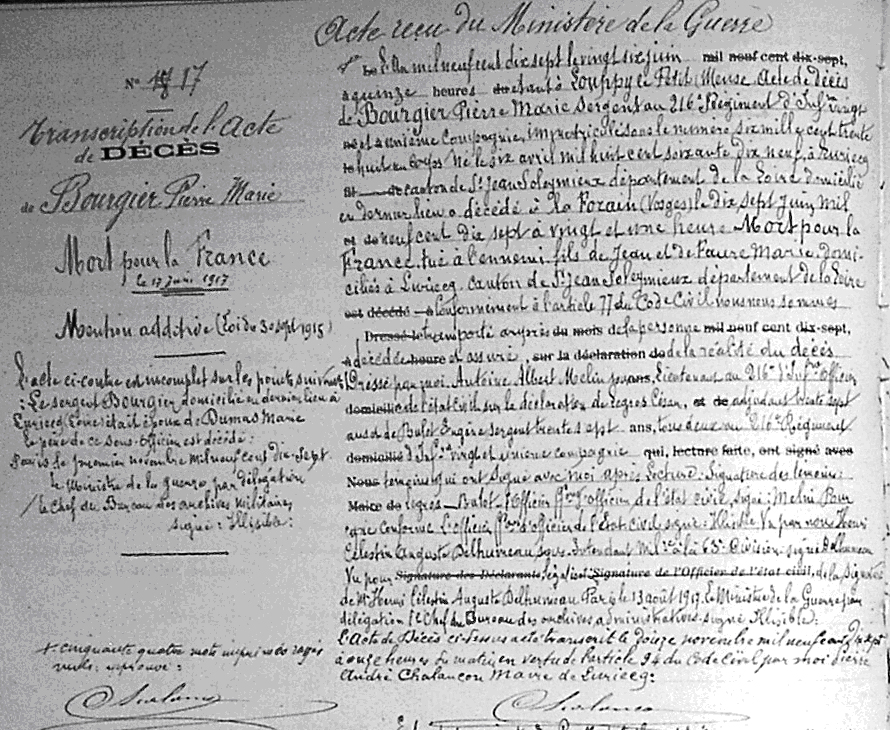 Acte reçu du Ministère de la Guerre
N° 18 17
Transcription de l'Acte
de DÉCÈS
de Bourgier Pierre Marie
Mort pour la France
le 17 Juin 1917
Mention additive (Loi du 30 sept 1915)
L'acte ci-contre est incomplet sur les points suivants
: Le sergent Bourgier domicilié en dernier lieu à
Luriecq Loire était époux de Dumas Marie
le père de ce sous-officier est décédé :
Paris le premier novembre mil neuf cent dix-sept
le Ministre de la guerre par délégation
le Chef du Bureau des archives militaires
signé : Illisible :
+ cinquante quatre mots imprimés rayés
nuls : approuvé :
Chalancon
Le L'An mil neuf cent dix sept le vingt six juin mil neuf cent dix-sept,
à quinze heures du étant à Louppy le Petit (Meuse Acte de décès
de Bourgier Pierre Marie Sergent au 216e Régiment d'Infrie vingt
et unième Compagnie, immatriculé sous le numéro six mille cent trente
huit au corps Né le six avril mil huit cent soixante dix neuf à Luriecq
canton de St Jean Soleymieux département de la Loire domicilié
en dernier lieu à décédé à (Vosges) le dix sept Juin mil
neuf cent dix sept à vingt et une heure Mort pour la
France tué à l'ennemi, fils de Jean et de Faure Marie, domi-
ciliés à Luriecq canton de St Jean Soleymieux département de la Loire
est décédé à Conformément à l'article 77 du Code Civil nous nous sommes
Dressé le transporté auprès du mois de la personne mil neuf cent dix-sept,
à décédée heure et assuré, sur la déclaration de de la réalité du décès
Dressé par moi Antoine Albert Melin ans, Lieutenant au 216e d'Infrie Officier
domicilié de l'état civil sur la déclaration de Legros César, et de adjudant trente sept
ans et de Balot Eugène sergent trente sept ans, tous deux au 216e Régiment
domicilié d'Infrie vingt et unième compagnie qui, lecture faite, ont signé avec
Nous témoins qui ont signé avec moi après Lecture : Signature des témoins :
Maire de Legros - Balot - l'Officier d'officier de l'état civil, signé : Melin Pour
copie conforme L'officier d'officier de l'État Civil signé : Illisible Vu par nous Henri
Célestin Auguste Delhumeau sous-Intendant Mil.re à la 63e Division signé Delhumeau
Vu pour Signature des Déclarants, légalisation Signature de l'Officier de l'état civil, de la signature
de Mr Henri Célestin Auguste Delhumeau Paris le 13 août 1917 Le Ministre de la Guerre par
délégation le Chef du Bureau des archives administratives signé Illisible :
L'Acte de Décès ci-dessus a été transcrit le douze novembre mil neuf cent dix sept
à onze heures du matin en vertu de l'article 94 du Code Civil par moi Pierre
André Chalancon Maire de Luriecq :
Chalancon